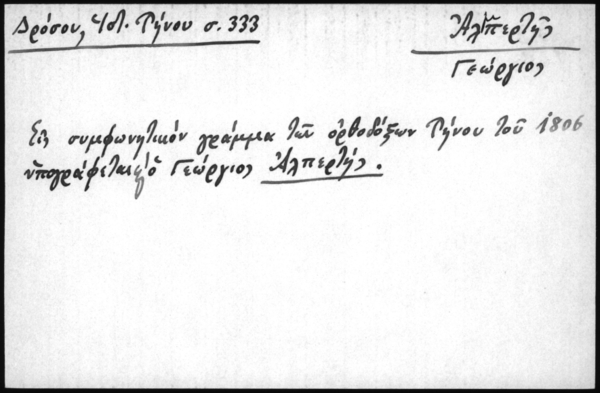 Δρόσου, Ἱστ. Τήνου σ. 333
Ἀλπερτῆς
Γεώργιος
Εἰς συμφωνητικόν γράμμα τῶν ὀρθοδόξων Τήνου τοῦ 1806
ὑπογράφεται ὁ Γεώργιος Ἀλπερτῆς.